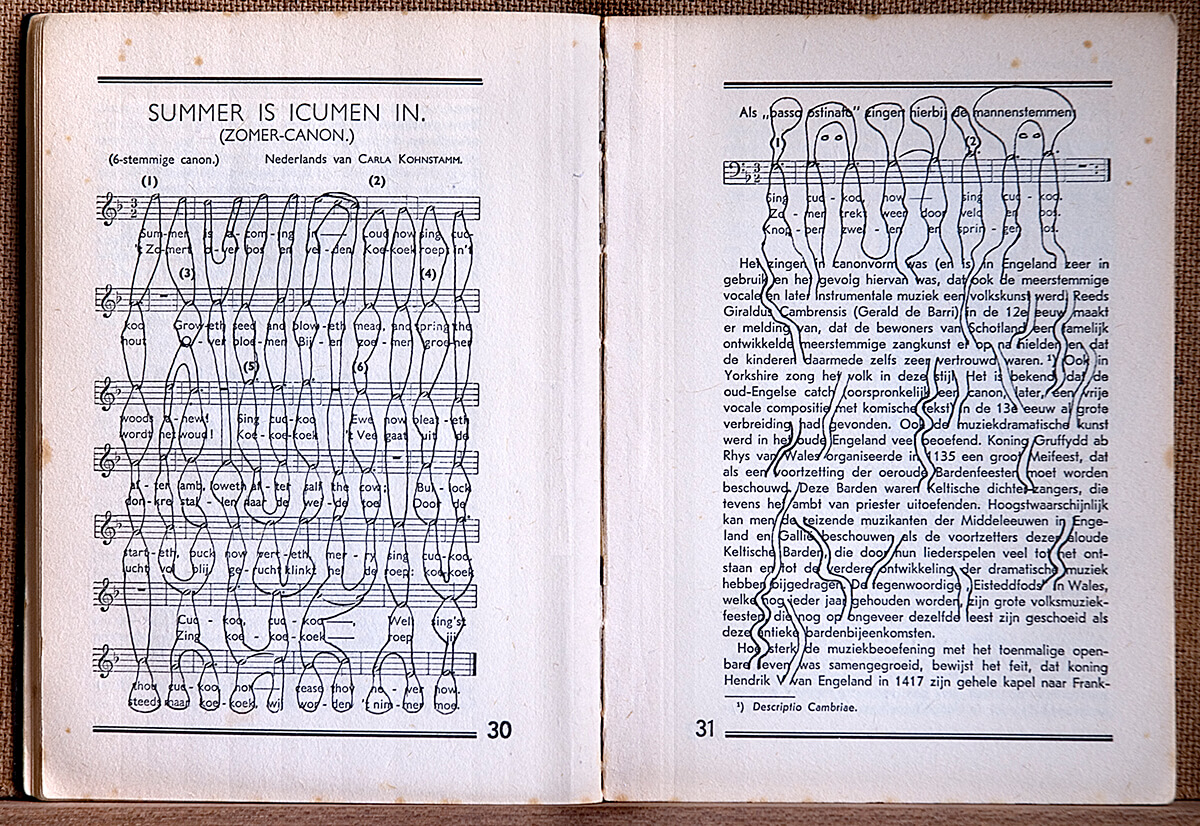 SUMMER IS ICUMEN IN.
(ZOMER-CANON.)
(6-stemmige canon.) Nederlands van CARLA KOHNSTAMM.
(1) (2)
Sum-mer is a-com-ing in Loud now sing cuc-
't Zo-mert o-ver bos en vel-den Koe-koek roept in't
(3) (4)
koo Grow-eth seed and blow-eth mead, and spring the
hout O-ver bloe-men Bij-en zoe-men groe-ner
(5) (6)
woods a-new! Sing cuc-koo Ewe now bleat-eth
wordt het woud! Koe-koe-koek 't Vee gaat uit de
af-ter lamb, loweth af-ter calf the cow; Bul-lock
don-kre stal-len naar de wei-de toe Door de
start-eth, buck now vert-eth, mer-ry sing cuc-koo,
ucht vol blij ge-rucht klinkt hel de roep: koe-koek
Cuc-koo, cuc-koo, Well sing'st
Zing koe-koe-koek roep jij
thou cuc-koo, nor cease thou ne-ver now.
steeds maar koe-koek, wil wor-den 't nim-mer moe.
30
Als „basso ostinato" zingen hierbij de mannenstemmen:
(1) (2)
Sing cuc-koo, now sing cuc-koo.
Zo-mer trekt weer door veld en bos.
Knop-pen zwel-len en sprin-gen los.
Het zingen in canonvorm was (en is) in Engeland zeer in
gebruik en het gevolg hiervan was, dat ook de meerstemmige
vocale en later instrumentale muziek een volkskunst werd. Reeds
Giraldus Cambrensis (Gerald de Barri) in de 12e eeuw maakt
er melding van, dat de bewoners van Schotland een tamelijk
ontwikkelde meerstemmige zangkunst er op na hielden en dat
de kinderen daarmede zelfs zeer vertrouwd waren. ¹) Ook in
Yorkshire zong het volk in deze stijl. Het is bekend, dat de
oud-Engelse catch (oorspronkelijk een canon, later een vrije
vocale compositie met komische tekst) in de 13e eeuw al grote
verbreiding had gevonden. Ook de muziekdramatische kunst
werd in het oude Engeland veel beoefend. Koning Gruffydd ab
Rhys van Wales organiseerde in 1135 een groot Meifeest, dat
als een voortzetting der oeroude Bardenfeesten moet worden
beschouwd. Deze Barden waren Keltische dichter-zangers, die
tevens het ambt van priester uitoefenden. Hoogstwaarschijnlijk
kan men de reizende muzikanten der Middeleeuwen in Enge-
land en Gallië beschouwen als de voortzetters dezer aloude
Keltische Barden, die door hun liederspelen veel tot het ont-
staan en tot de verdere ontwikkeling der dramatische muziek
hebben bijgedragen. De tegenwoordige „Eisteddfods" in Wales,
welke nog ieder jaar gehouden worden, zijn grote volksmuziek-
feesten, die nog op ongeveer dezelfde leest zijn geschoeid als
deze antieke bardenbijeenkomsten.
Hoe sterk de muziekbeoefening met het toenmalige open-
bare leven was samengegroeid, bewijst het feit, dat koning
Hendrik V van Engeland in 1417 zijn gehele kapel naar Frank-
¹) Descriptio Cambriae.
31